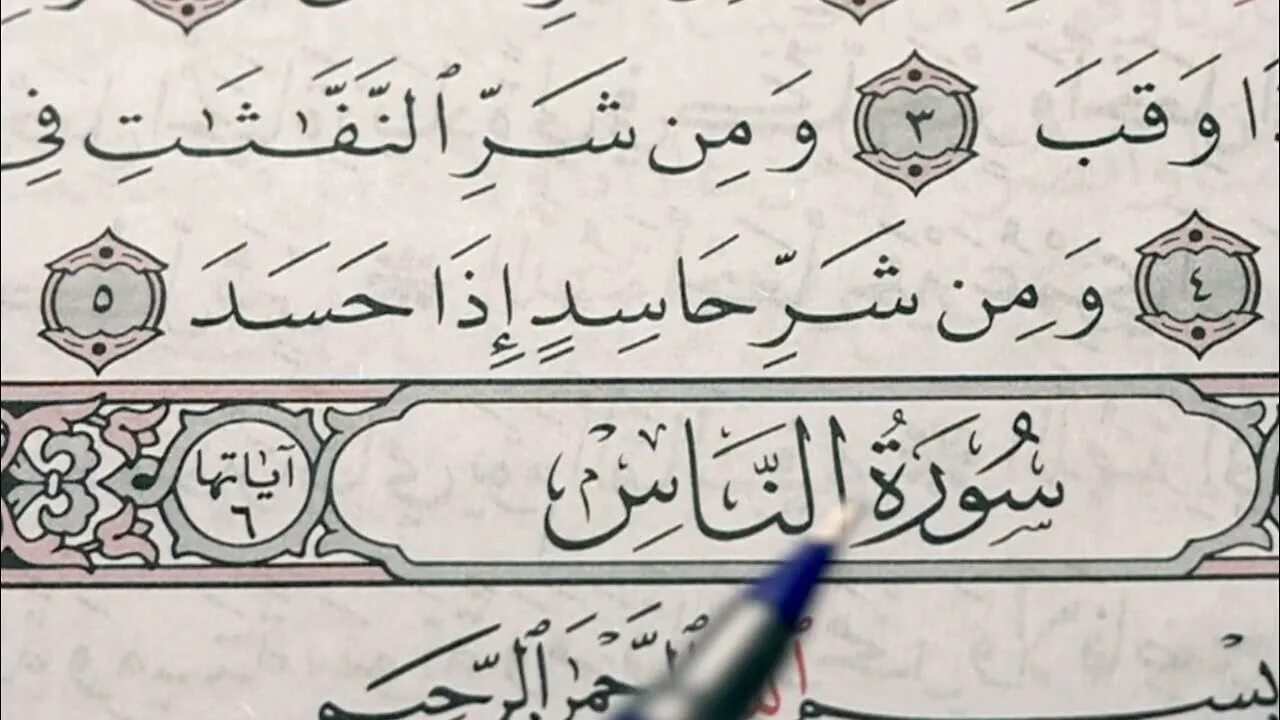 وَقَبَ ٣ وَمِن شَرِّ ٱلنَّفَّٰثَٰتِ فِي
٤ وَمِن شَرِّ حَاسِدٍ إِذَا حَسَدَ ٥
سُورَةُ النَّاسِ
آيَاتها ٦
ٱلرَّحْمَٰنِ ٱلرَّحِيمِ